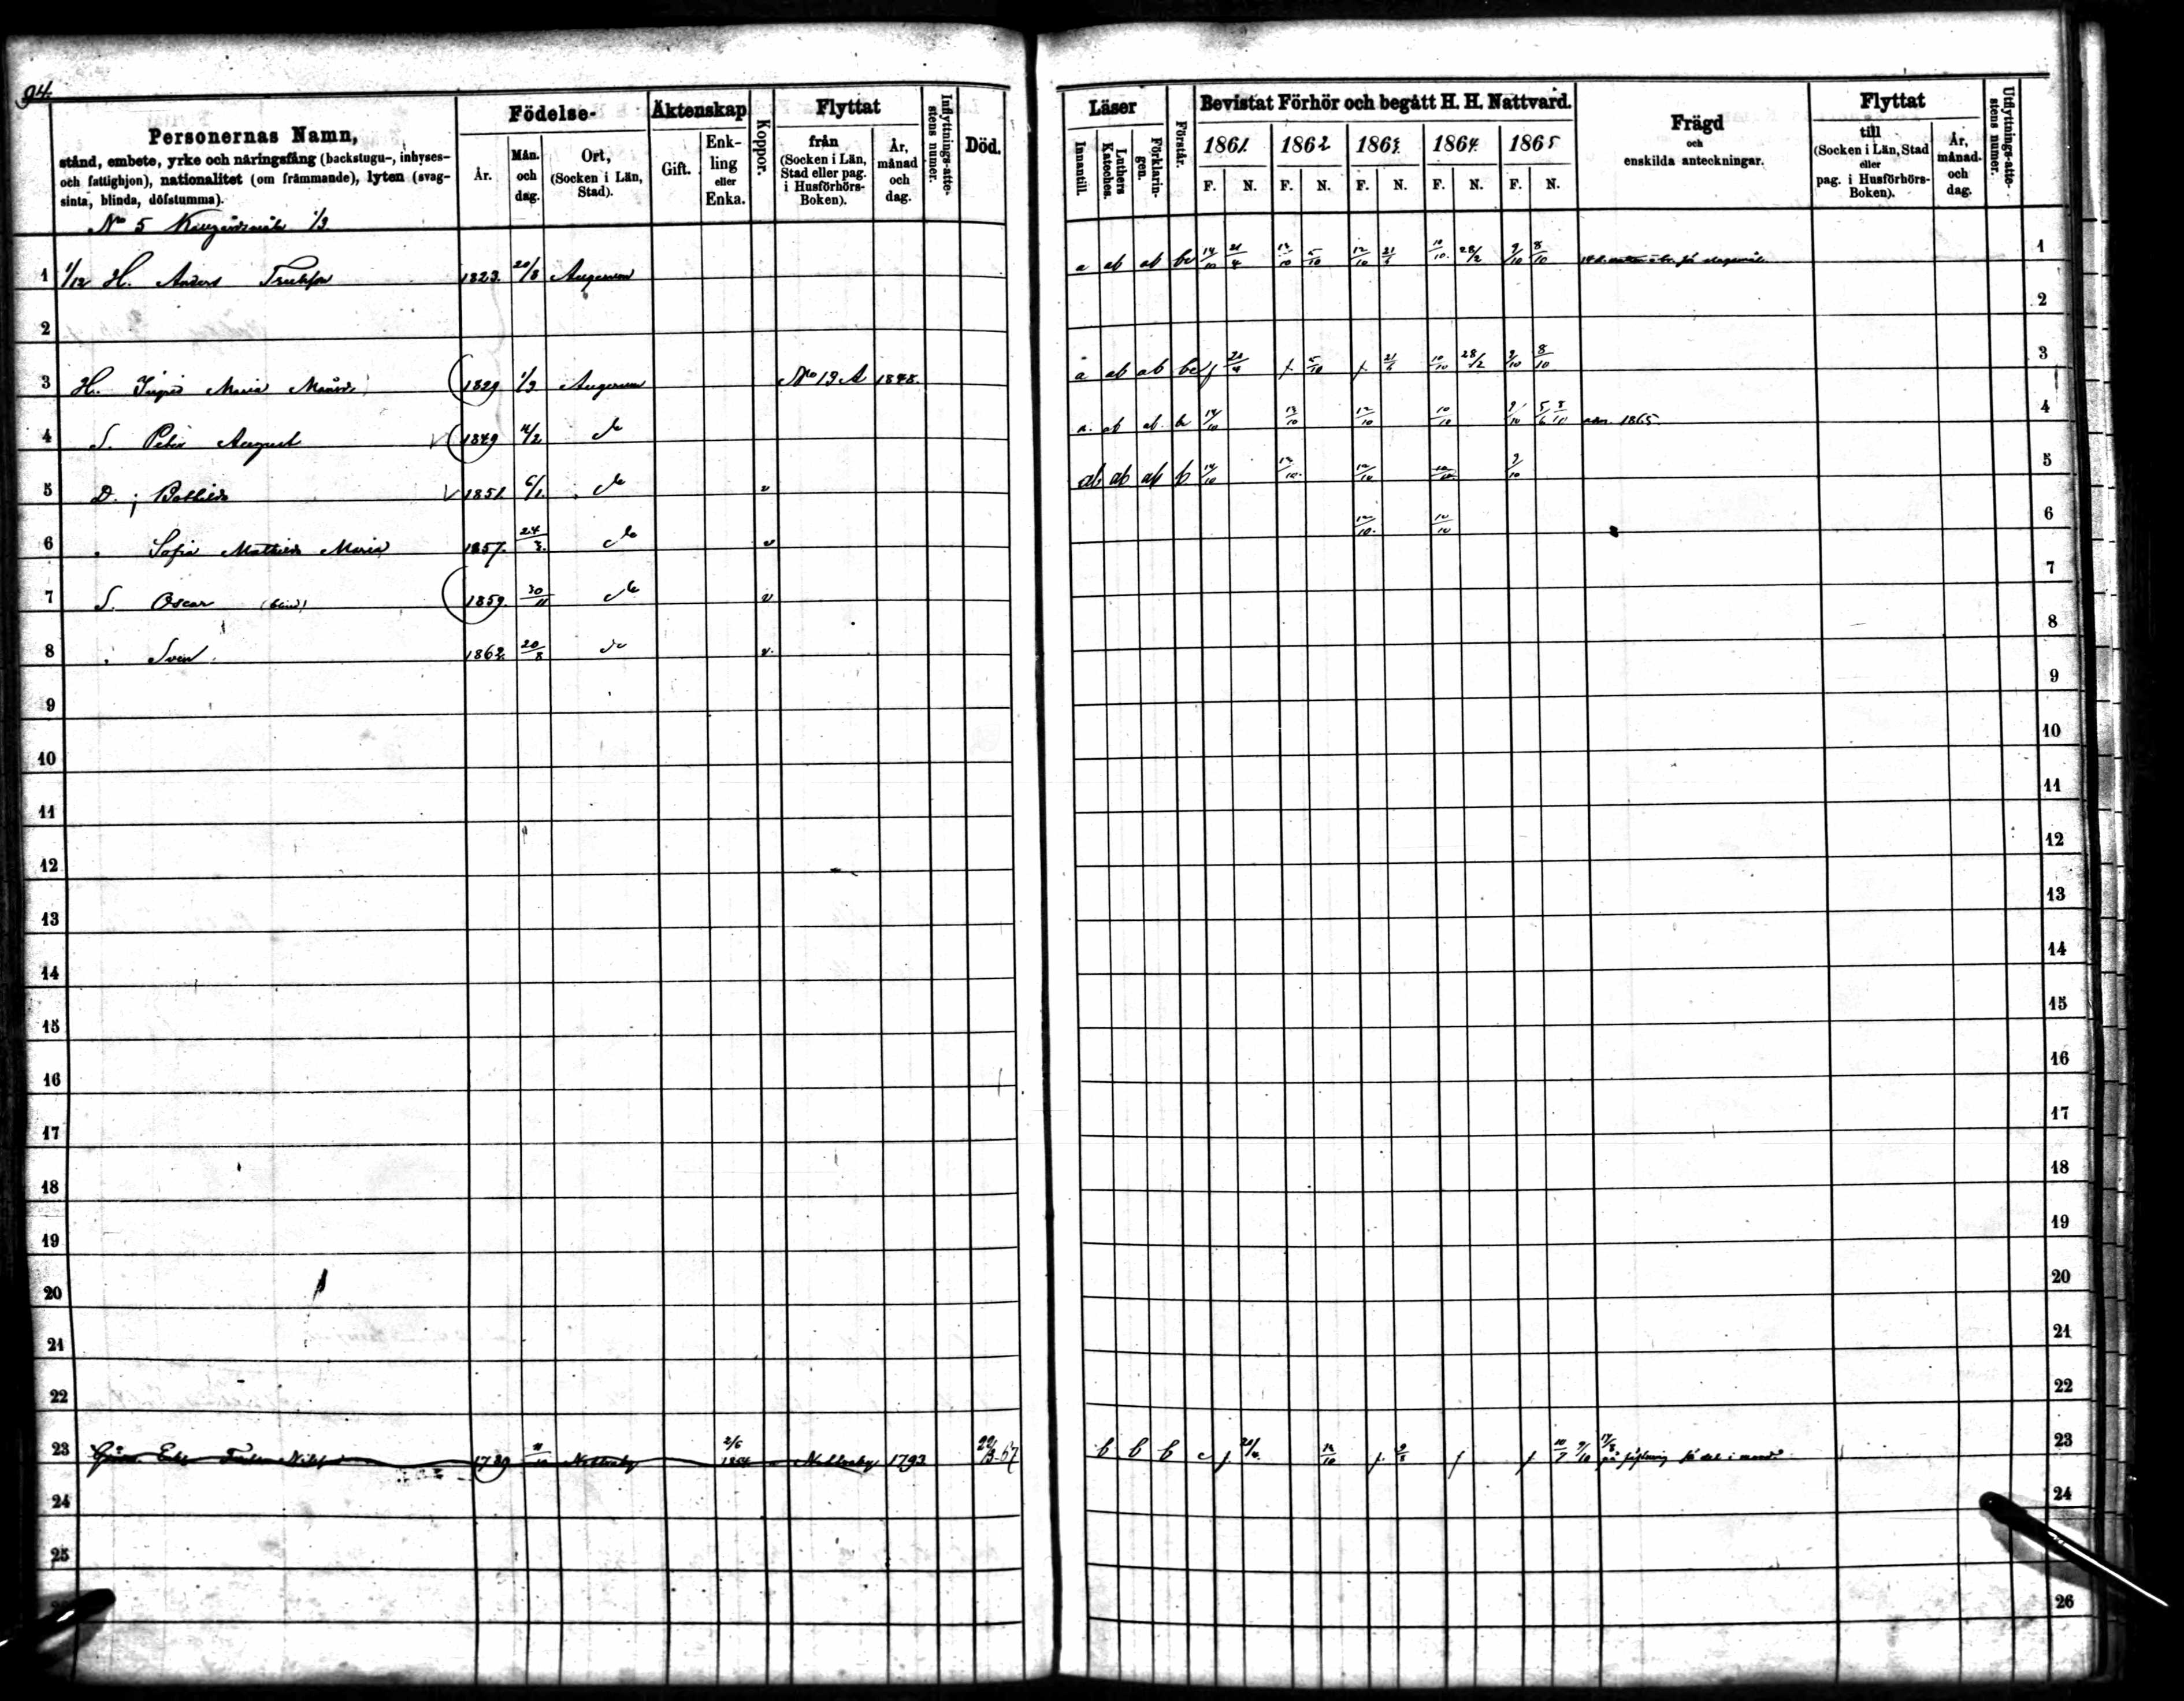 94.
Personernas Namn,
stånd, embete, yrke och näringsfång (backstugu-, inhyses-
och fattighjon), nationalitet (om främmande), lyten (svag-
sinta, blinda, döfstumma).
Födelse-
År.
Mån. och dag.
Ort, (Socken i Län, Stad).
Äktenskap
Gift.
Enk-ling eller Enka.
Koppor.
Flyttat
från (Socken i Län, Stad eller pag. i Husförhörs-Boken).
År, månad och dag.
Inflyttnings-atte-stens numer.
Död.
Läser
Innantill.
Luthers Kateches.
Förklarin-gen.
Förstår.
Bevistat Förhör och begått H. H. Nattvard.
1861. 1862 1863. 1864. 1865
F. N. F. N. F. N. F. N. F. N.
Frägd
och
enskilda anteckningar.
Flyttat
till (Socken i Län, Stad eller pag. i Husförhörs-Boken).
År, månad. och dag.
Utflyttnings-atte-stens numer.
No 5 1/3
1 1/12 H. Anders 1823. 20/8 Augerum a ab ab be 14/10 21/4 13/10 5/10 12/10 21/6 10/10 28/2 9/10 8/10 1
2 2
3 H. Ingrid Maria 1829 1/3 Augerum No 19 A 1848. a ab ab be 5/10 21/6 10/10 28/2 9/10 8/10 3
4 S. Peter August 1849 do a. ab ab b 14/10 13/10 12/10 10/10 9/10 1865. 4
5 D. 1851 6/1 do v ab ab ab b 14/10 13/10 12/10 10/10 9/10 5
6 Sofia Mathilda Maria 1857. 24/3. do v 12/10. 12/10 6
7 S. Oscar (blind) 1859. 30/11 do v 7
8 Sven 1862. 20/8 do v. 8
9 9
10 10
11 11
12 12
13 13
14 14
15 15
16 16
17 17
18 18
19 19
20 20
21 21
22 22
23 Enka 1789 Nettraby 2/6 1854 Nettraby 1793 b b b c 23
24 24
25
26